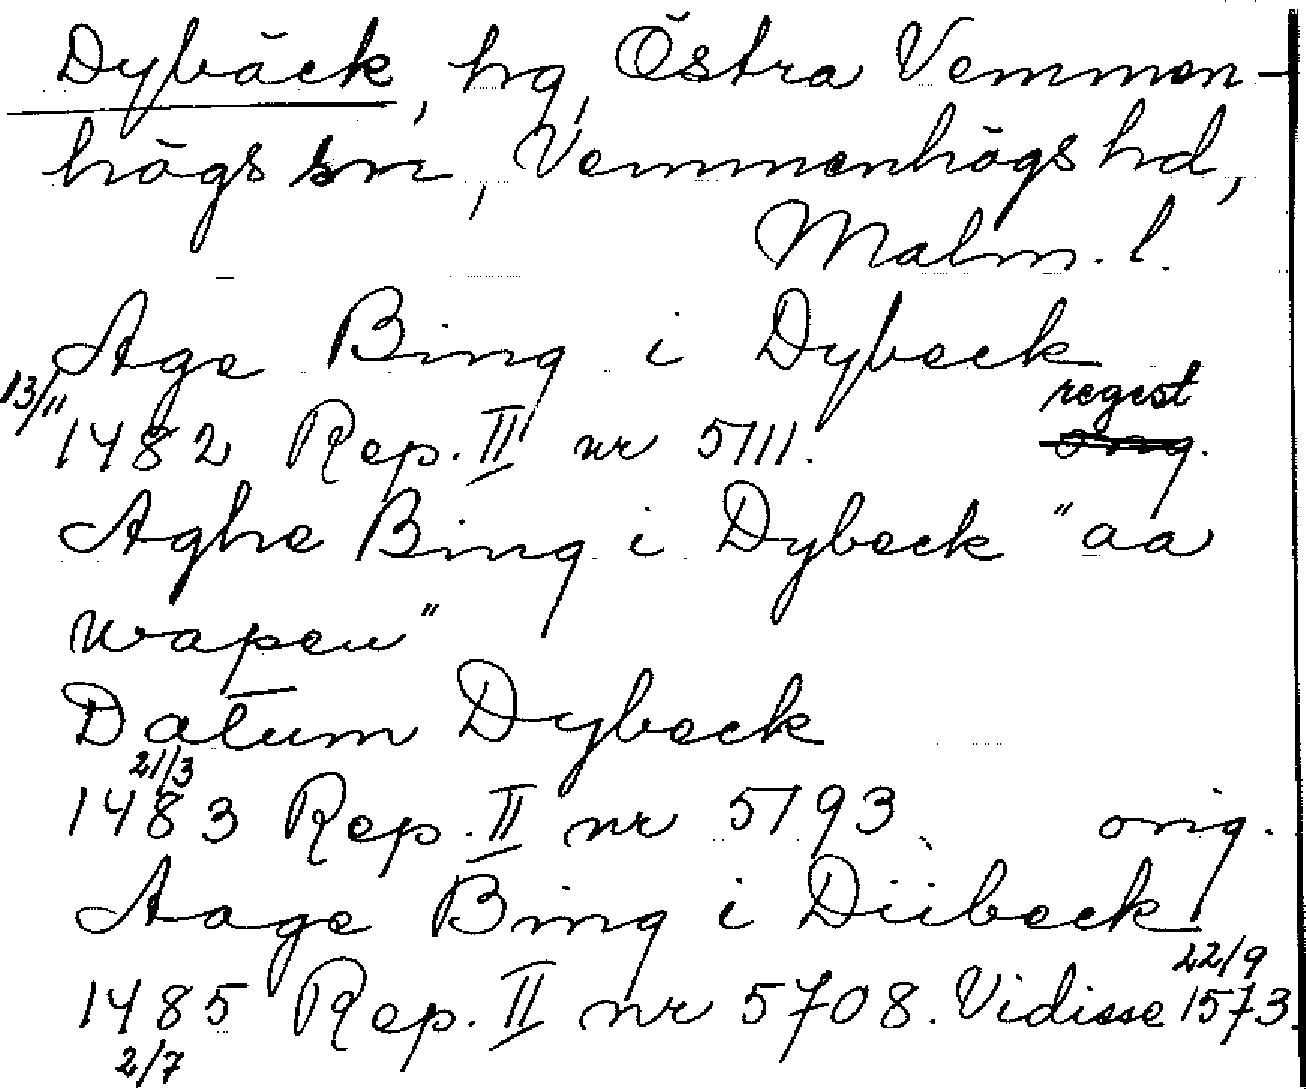 Dybäck, hg, Östra Vemmen-
högs sn, Vemmenhögs hd,
Malm. l.
Age Bing i Dybeck
13/11 regest
1482 Rep. II nr 5111. orig.
Aghe Bing i Dybeck "aa
wapen"
Datum Dybeck
21/3
1483 Rep. II nr 5193. orig.
Aage Bing i Diibeck
22/9
1485 Rep. II nr 5708. Vidisse 1573.
2/7